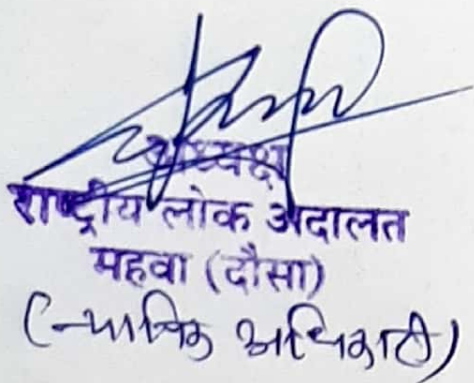 अध्यक्ष
राष्ट्रीय लोक अदालत
महवा (दौसा)
(न्यायिक अधिकारी)